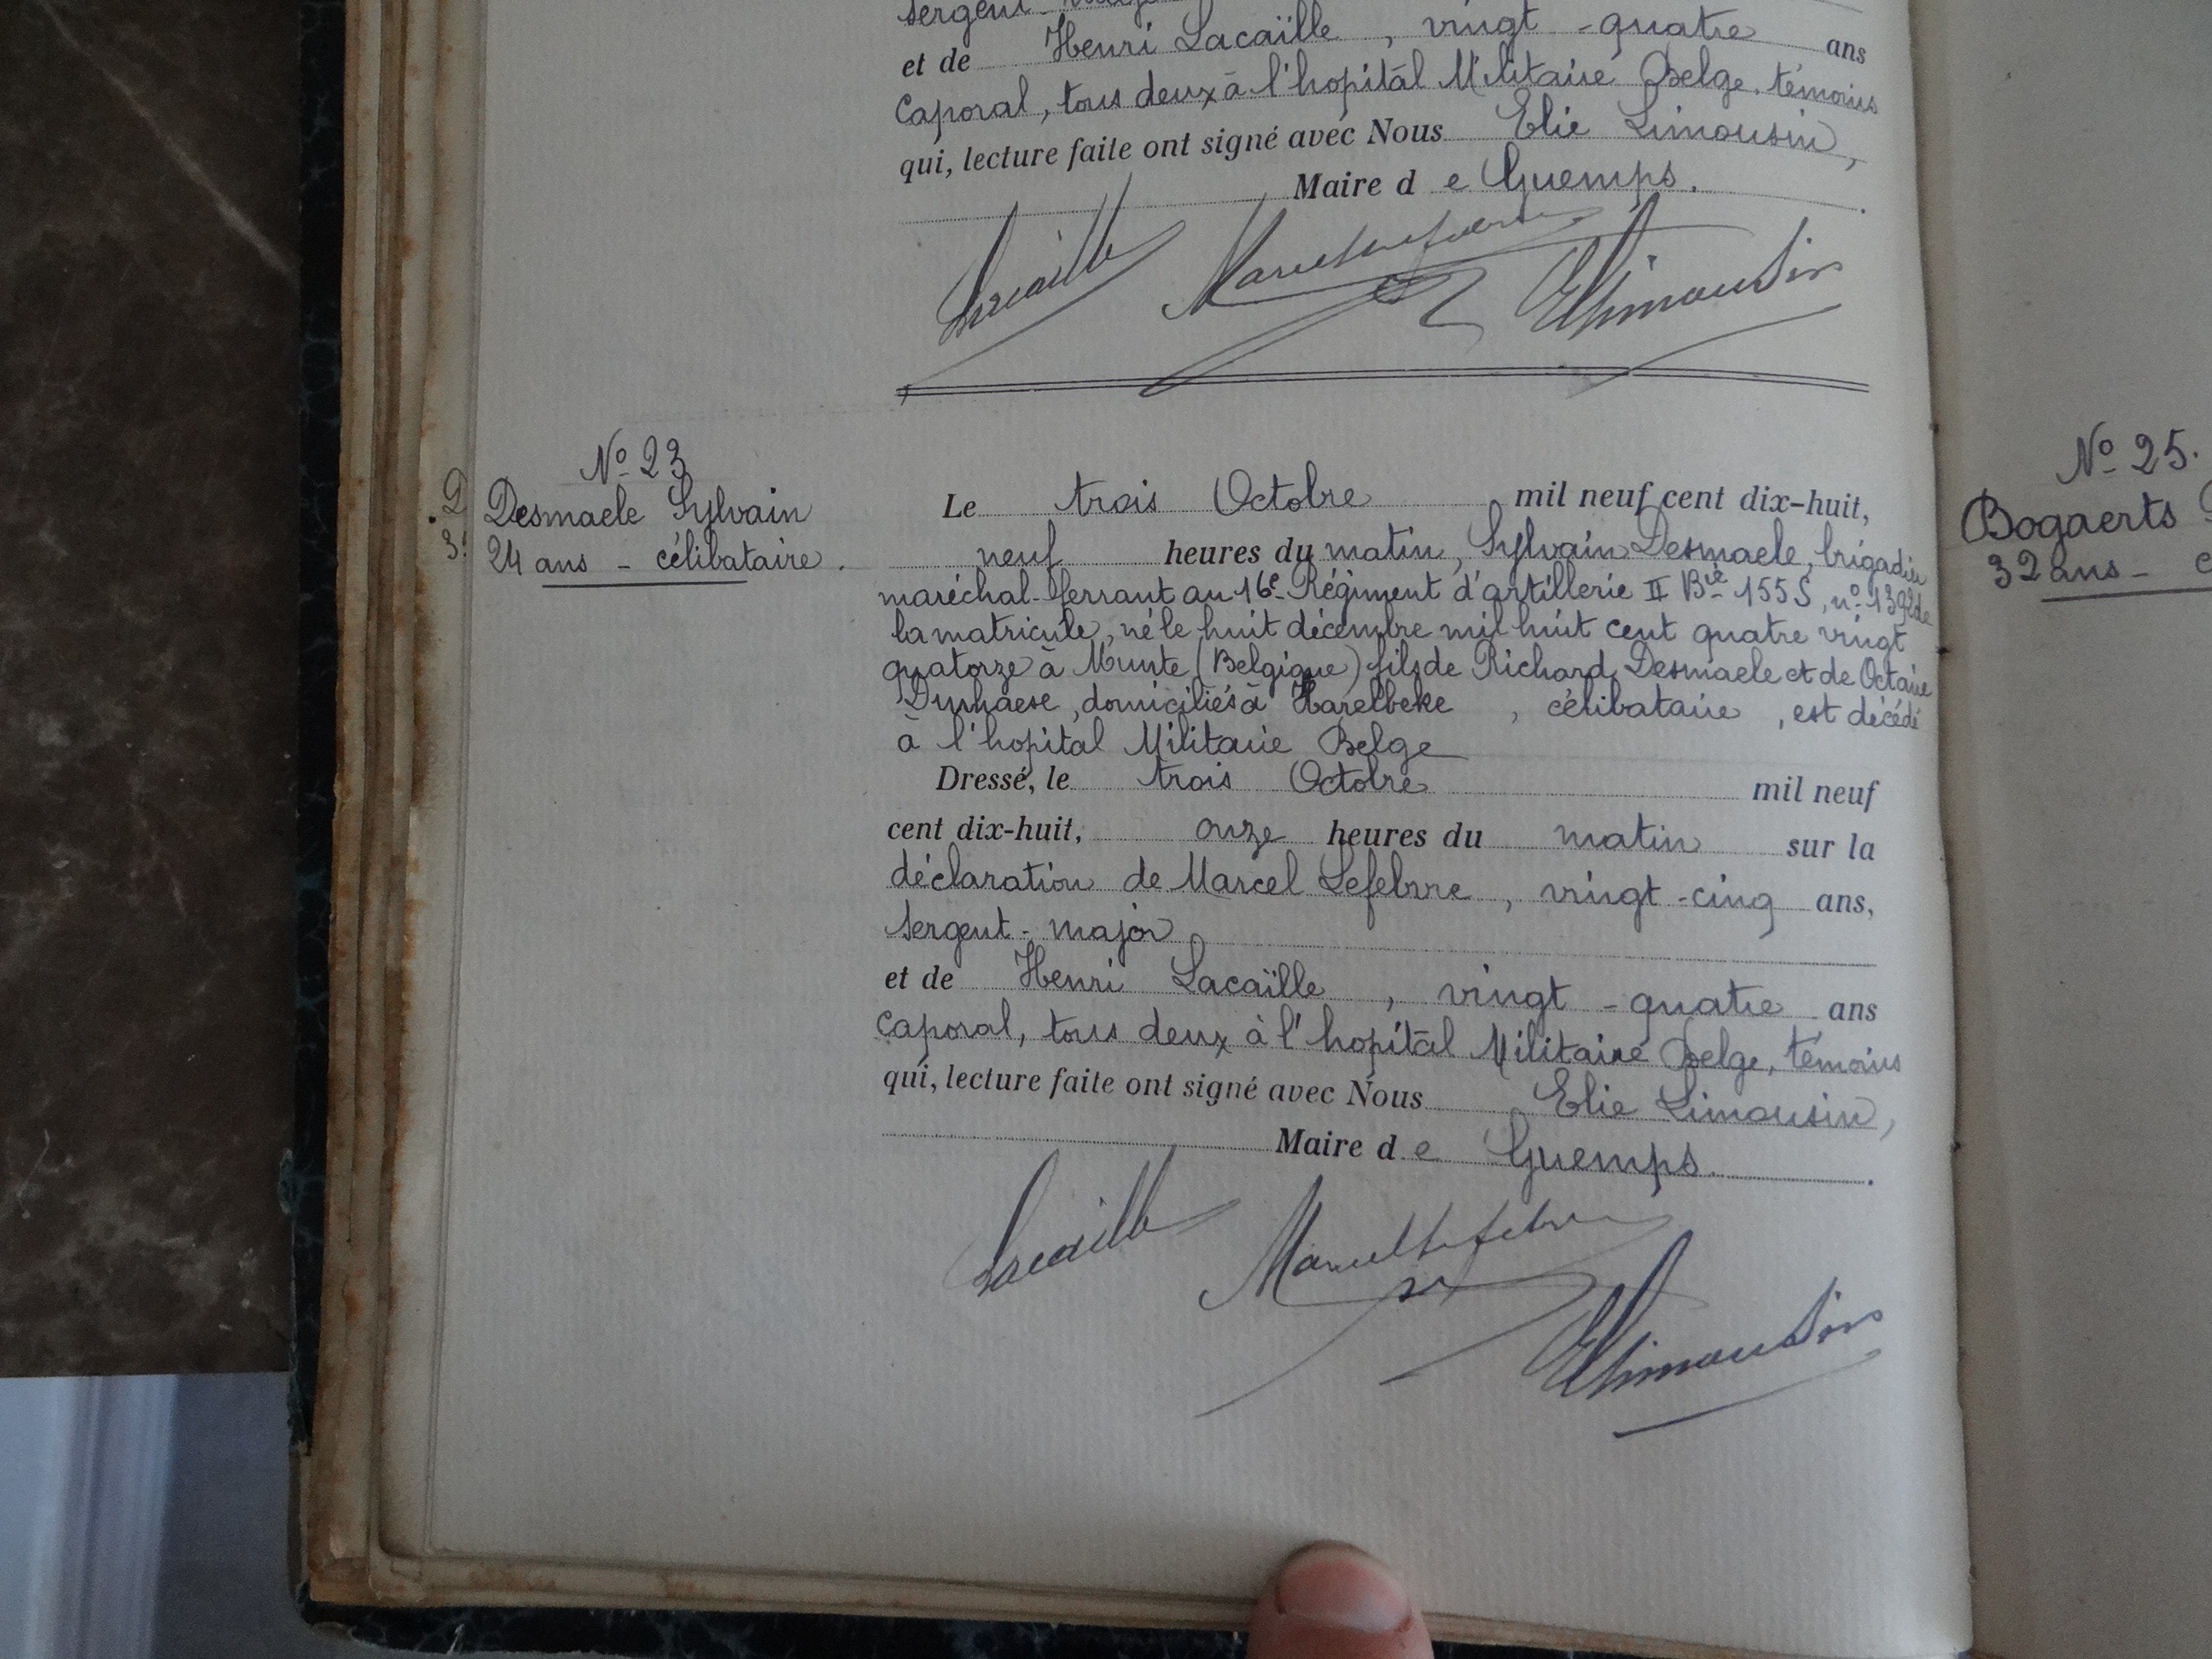 sergent-major
et de Henri Lacaïlle, vingt-quatre ans
caporal, tous deux à l'hopital Militaire Belge, témoins
qui, lecture faite ont signé avec Nous Elie Limousin,
Maire de Guemps.
Lacaille Marcel Lefebvre E Limousin
Nº 23
Desmaele Sylvain
24 ans - célibataire.
Le trois Octobre mil neuf cent dix-huit,
neuf heures du matin, Sylvain Desmaele, brigadier
maréchal-ferrant au 16e Régiment d'artillerie II Bie 155 S, nº 1392 de
la matricule, né le huit décembre mil huit cent quatre vingt
quatorze à Munte (Belgique) fils de Richard Desmaele et de Octavie
domiciliés à Harelbeke, célibataire, est décédé
à l'hopital Militaire Belge
Dressé, le trois Octobre mil neuf
cent dix-huit, onze heures du matin sur la
déclaration de Marcel Lefebvre, vingt-cinq ans,
sergent-major
et de Henri Lacaïlle, vingt-quatre ans
caporal, tous deux à l'hopital Militaire Belge, témoins
qui, lecture faite ont signé avec Nous Elie Limousin,
Maire de Guemps.
Lacaille Marcel Lefebvre E Limousin
Nº 25.
Bogaerts
32 ans -